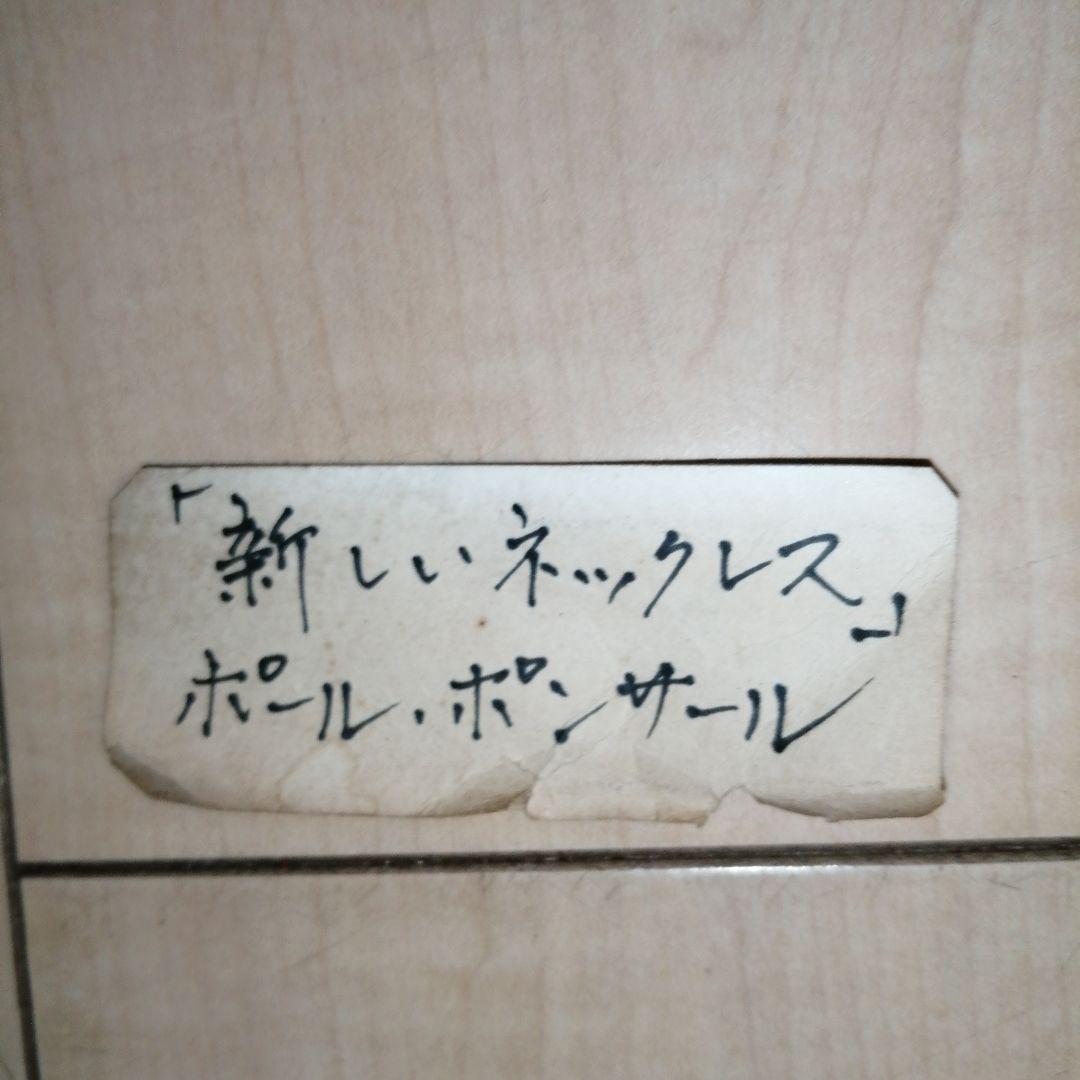 「新しいネックレス」
ポール・ポンサール